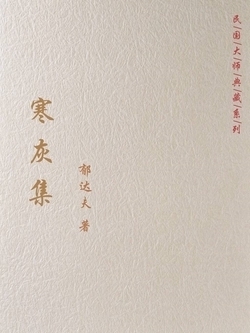 民/国/大/师/典/藏/系/列
寒灰集
郁达夫 著